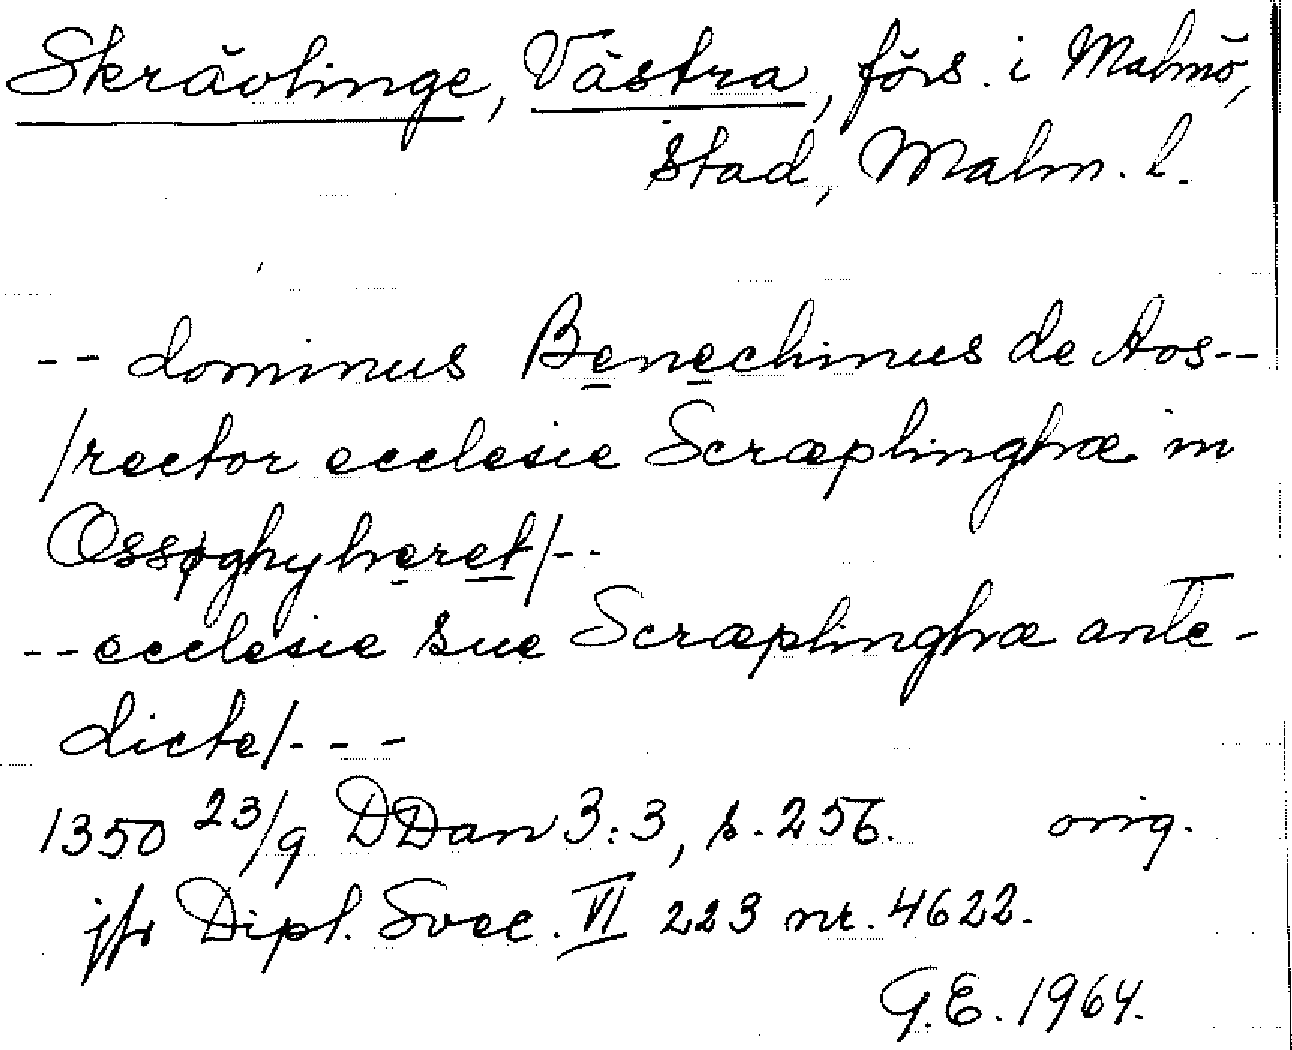 Skrävlinge, Västra, förs. i Malmö,
stad, Malm. l.
-- dominus Benechinus de Aos--
/rector ecclesie Scræplinghæ in
Ossøghyhæret/--
-- ecclesie sue Scræplinghæ ante-
dicte/---
1350 23/9 DDan 3:3, s. 256. orig.
jfr Dipl. Svec. VI 223 nr. 4622.
G.E. 1964.